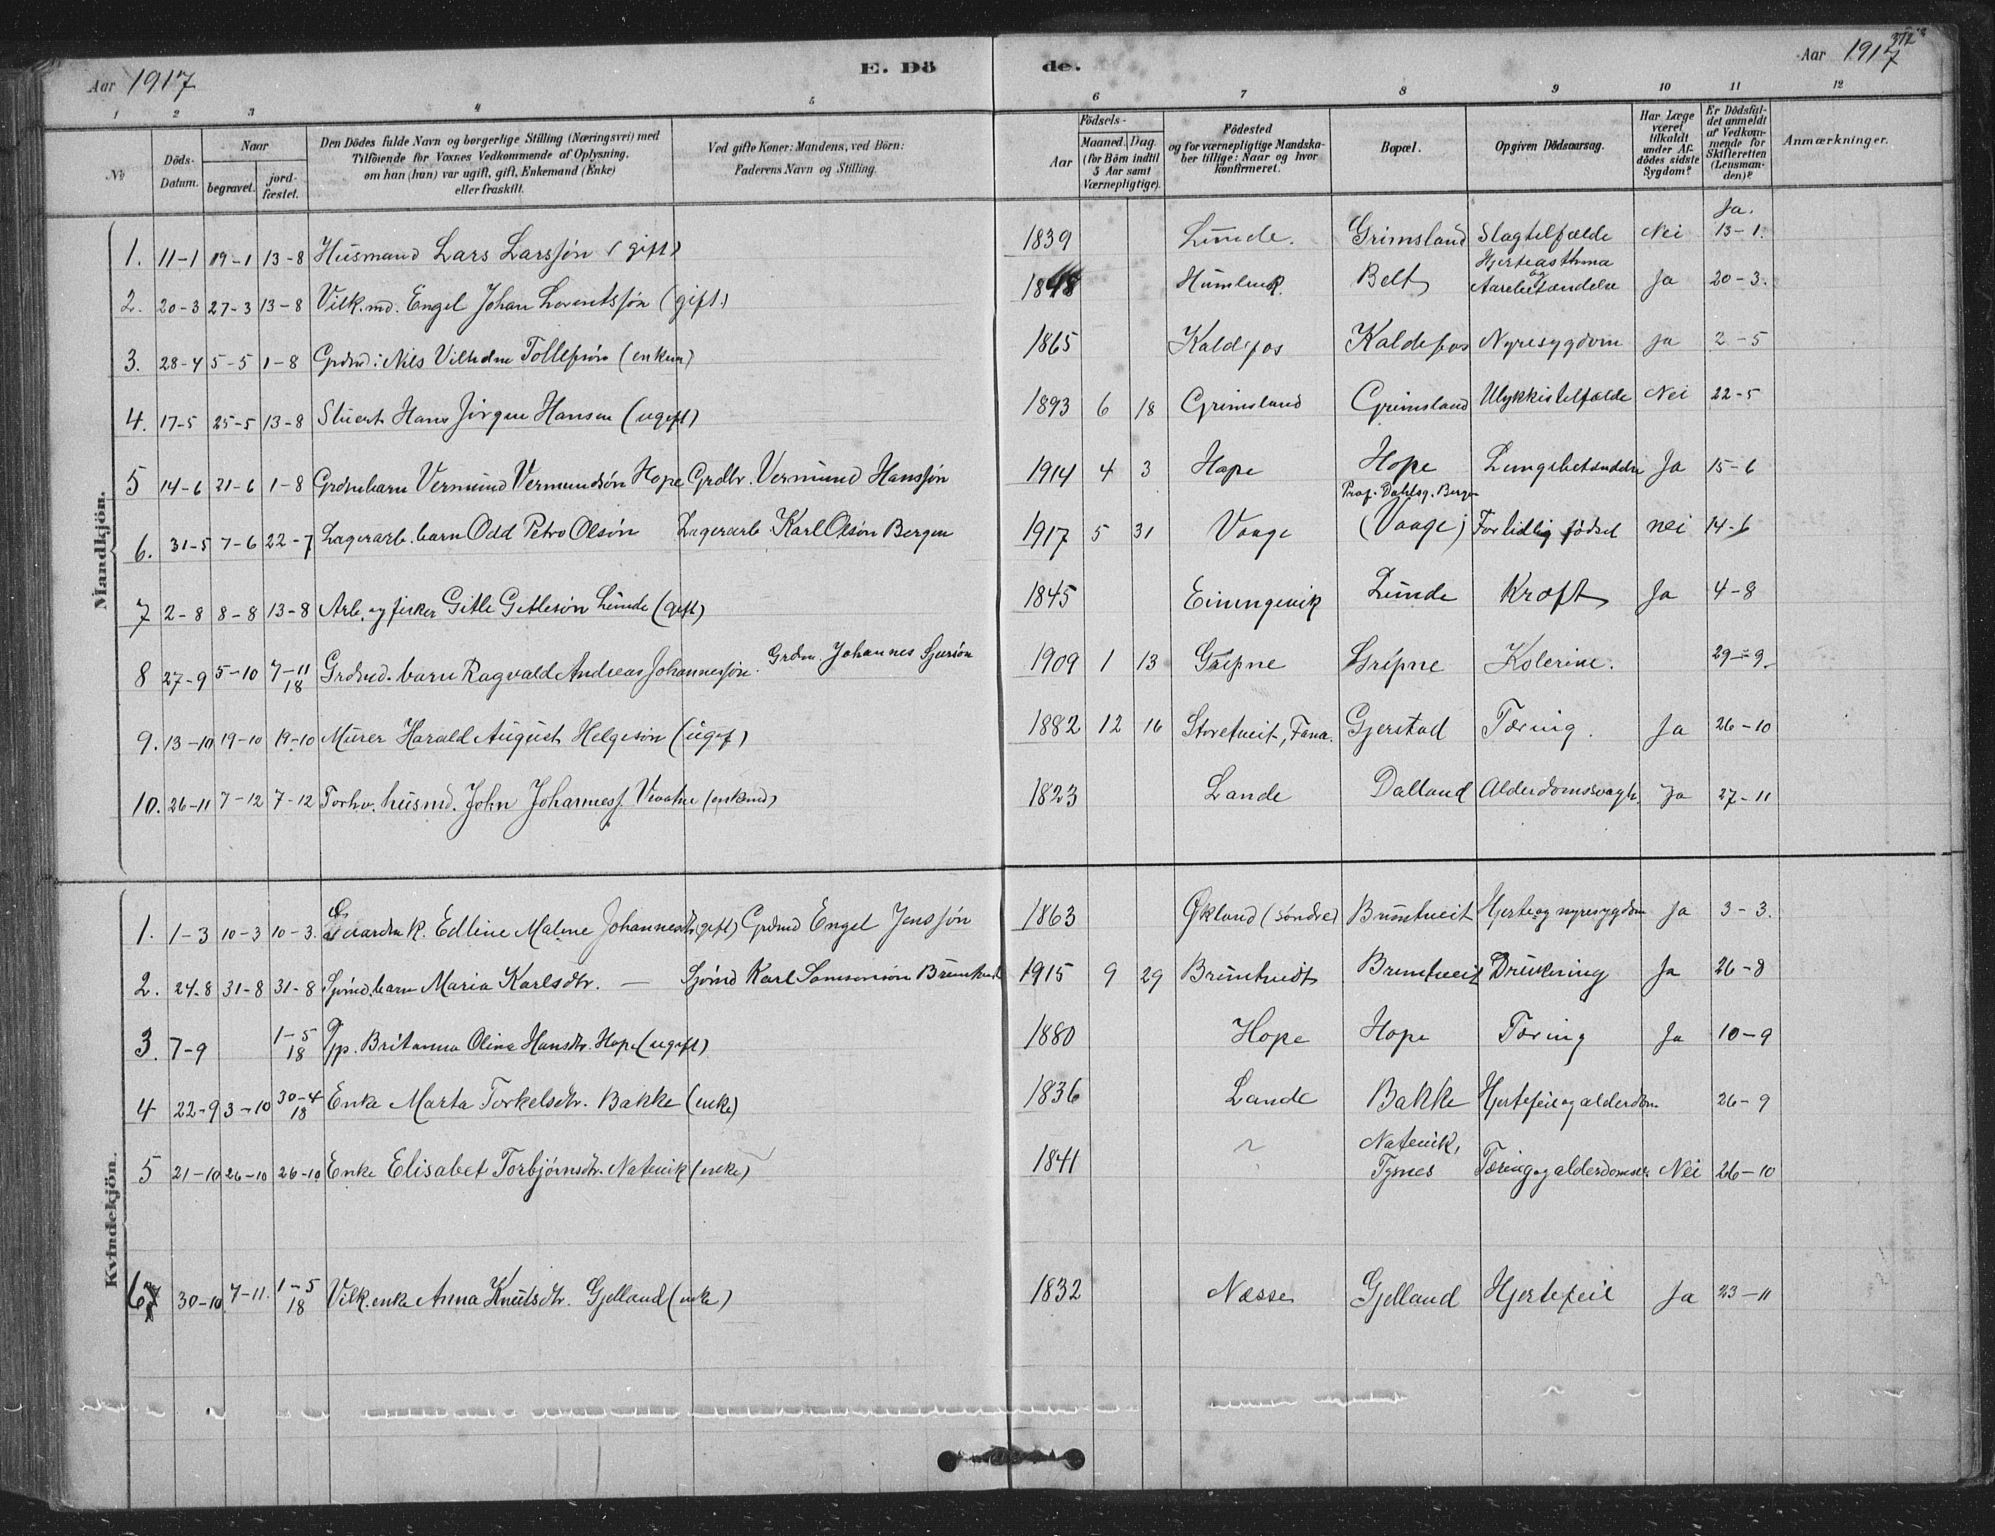 Aar 1917 E. Dö de. Aar 1917 312
1 2 3 4 5 6 7 8 9 10 11 12
№ Döds-Datum. Naar begravet. jordfæstet. Den Dödes fulde Navn og borgerlige Stilling (Næringsvei) med Tilföiende for Voxnes Vedkommende af Oplysning, om han (hun) var ugift, gift, Enkemand (Enke) eller fraskilt. Ved gifte Koner: Mandens, ved Börn: Faderens Navn og Stilling. Födsels- Aar Maaned. Dag. (for Börn indtil 5 Aar samt Værnepligtige). Födested og for værnepligtige Mandskaber tillige: Naar og hvor konfirmeret. Bopæl. Opgiven Dödsaarsag. Har Læge været tilkaldt under Afdödes sidste Sygdom? Er Dödsfaldet anmeldt af Vedkommende for Skifteretten (Lensmanden)? Anmærkninger.
Mandkjön.
1. 11-1 19-1 13-8 Husmand Lars Larssön (gift) 1839 Lunde. Grimsland Slagtilfælde Nei Ja. 13-1.
2. 20-3 27-3 13-8 Vilk.md. Engel Johan Lorentssön (gift) 1848 Belt Hjerteasthma og Aarebetændelse Ja 20-3.
3. 28-4 5-5 1-8 Grdmd. Nils Vilhelm Tollefsön (enkem) 1865 Kaldefos Kaldefos Nyresygdom Ja 2-5
4. 17-5 25-5 13-8 Stuert Hans Jörgen Hansen (ugift) 1893 6 18 Grimsland Grimsland Ulykkestilfælde Nei 22-5
5 14-6 21-6 1-8 Grdmdbarn Vermund Vermundsön Hope Grdbr. Vermund Hanssön 1914 4 3 Hope Hope Lungebetændelse Ja 15-6
6. 31-5 7-6 22-7 Lagerarb. barn Odd Petro Olsön Lagerarb Karl Olsön Bergen 1917 5 31 Vaage Prof. Dahlsg. Bergen (Vaage) For tidlig födsel nei 14-6
7 2-8 8-8 13-8 Arb. og fisker Gitle Gitlesön Lunde (gift) 1845 Einingevik Lunde Kræft Ja 4-8
8 27-9 5-10 7-11 18 Grdmd. barn Ragvald Andreas Johannessön Grdm. Johannes Sjursön 1909 1 13 Gripne Gripne Kolerine. 29-9.
9. 13-10 19-10 19-10 Murer Harald August Helgesön (ugift) 1882 12 16 Storetveit, Fana. Gjerstad Tæring. Ja 26-10
10. 26-11 7-12 7-12 Forhv. husmd. John Johanness. (enkmd) 1823 Lande Dalland Alderdomssvagh. Ja 27-11
Kvindekjön.
1. 1-3 10-3 10-3. Gaardm.k. Edline Maline Johannesdtr (gift) Grdmd Engel Jenssön 1863 Økland (söndre) Bruntveit Hjerte og nyresygdom Ja 3-3.
2. 24-8 31-8 31-8 Sjömd. barn Maria Karlsdtr. — Sjömd Karl Samsonsön Bruntveit 1915 9 29 Bruntveit Bruntveit Drukning Ja 26-8
3. 7-9 1-5 18 Pp. Britanna Oline Hansdtr. Hope (ugift) 1880 Hope Hope Tæring Ja 10-9
4 22-9 3-10 30-4 18 Enke Marta Torkelsdtr. Bakke (enke) 1836 Lande Bakke Hjertefeil og alderdom. 26-9
5 21-10 26-10 26-10 Enke Elisabet Torbjörnsdtr. Natevik (enke) 1841 ? Natevik, Tysnes Tæring og alderdomss. Nei 26-10
6 30-10 7-11. 1-5 18 Vilk.enke Anna Knutsdtr. Gjelland (enke) 1832 Næsse Gjelland Hjertefeil Ja 23-11